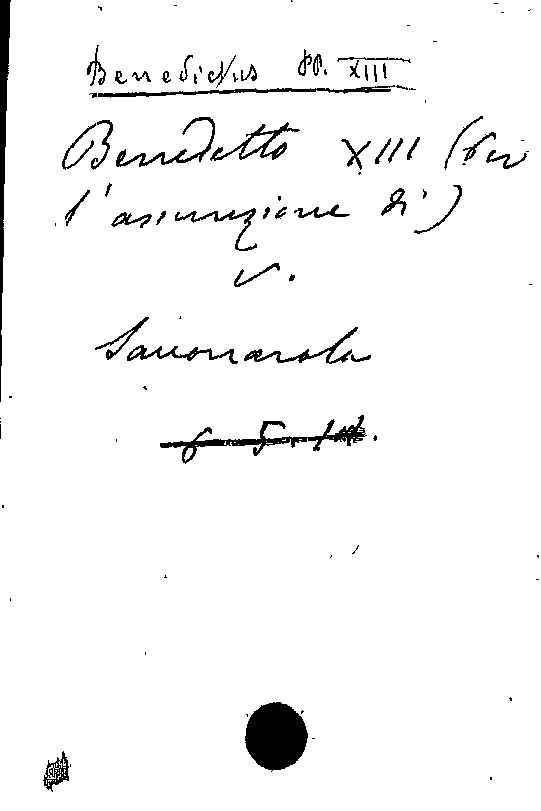 Benedictus PP. XIII
Benedetto XIII (Per
l'assunzione di)
v.
Savonarola
6 5.